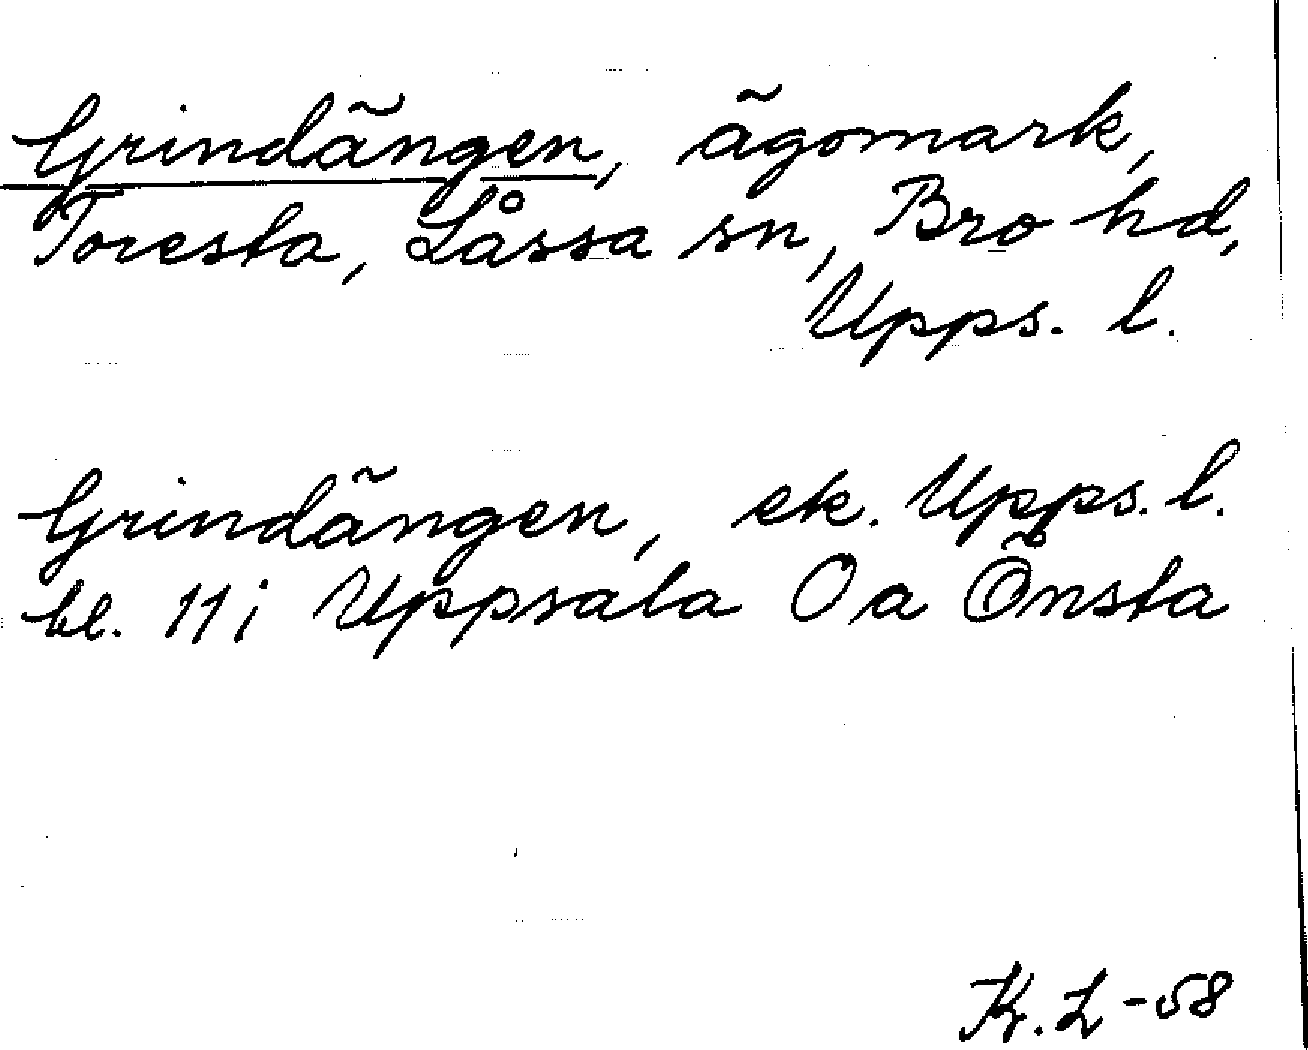 Grindängen, ägomark,
Toresta, Låssa sn, Bro hd,
Upps. l.
Grindängen, ek. Upps. l.
bl. 11 i Uppsala Oa Önsta
K. L -58